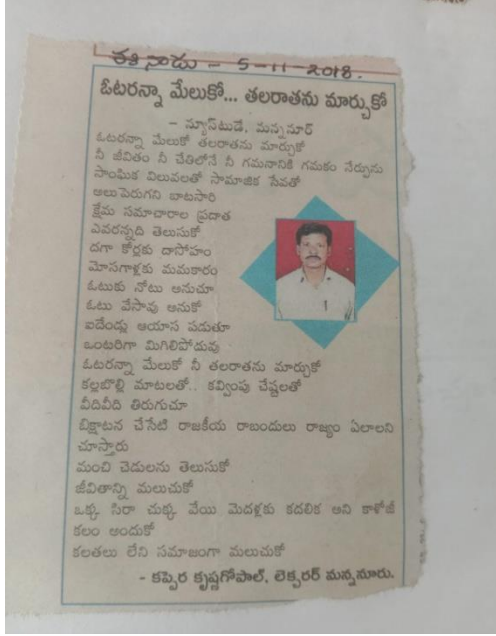 ఈనాడు - 5-11-2018.
ఓటరన్నా మేలుకో... తలరాతను మార్చుకో
- న్యూస్‌టుడే, మన్ననూర్
ఓటరన్నా మేలుకో తలరాతను మార్చుకో
నీ జీవితం నీ చేతిలోనే నీ గమనానికి గమకం నేర్పును
సాంఘిక విలువలతో సామాజిక సేవతో
అలుపెరుగని బాటసారి
క్షేమ సమాచారాల ప్రదాత
ఎవరన్నది తెలుసుకో
దగా కోర్లకు దాసోహం
మోసగాళ్లకు మమకారం
ఓటుకు నోటు అనుచూ
ఓటు వేసావు అనుకో
ఐదేండ్లు ఆయాస పడుతూ
ఒంటరిగా మిగిలిపోదువు
ఓటరన్నా మేలుకో నీ తలరాతను మార్చుకో
కల్లబొల్లి మాటలతో.. కవ్వింపు చేష్టలతో
వీదివీది తిరుగుచూ
బిక్షాటన చేసేటి రాజకీయ రాబందులు రాజ్యం ఏలాలని
చూస్తారు
మంచి చెడులను తెలుసుకో
జీవితాన్ని మలుచుకో
ఒక్క సిరా చుక్క వేయి మెదళ్లకు కదలిక అని కాళోజీ
కలం అందుకో
కలతలు లేని సమాజంగా మలుచుకో
- కప్పెర కృష్ణగోపాల్, లెక్చరర్ మన్ననూరు.